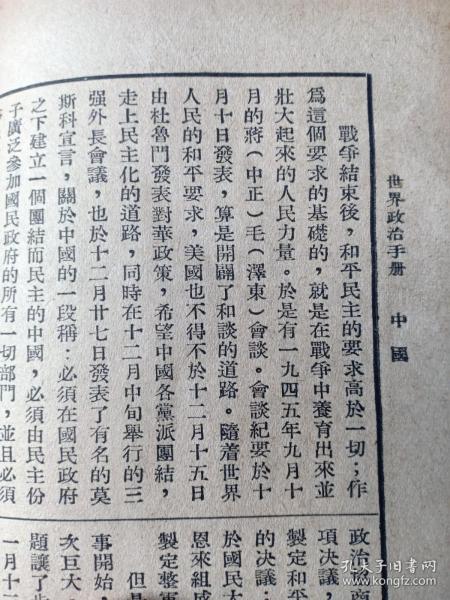 世界政治手册 中國
戰爭結束後，和平民主的要求高於一切；作
爲這個要求的基礎的，就是在戰爭中養育出來並
壯大起來的人民力量。於是有一九四五年九月十
月的蔣（中正）毛（澤東）會談。會談紀要於十
月十日發表，算是開闢了和談的道路。隨着世界
人民的和平要求，美國也不得不於十二月十五日
由杜魯門發表對華政策，希望中國各黨派團結，
走上民主化的道路，同時在十二月中旬舉行的三
强外長會議，也於十二月廿七日發表了有名的莫
斯科宣言，關於中國的一段稱：必須在國民政府
之下建立一個團結而民主的中國，必須由民主份
子廣泛參加國民政府的所有一切部門，並且必須
政治
項決議，
製定和平
的决議：
於國民大
恩來組成
製定整軍
但是
事開始，
次巨大
題讓了步
一月十二
孔夫子旧书网